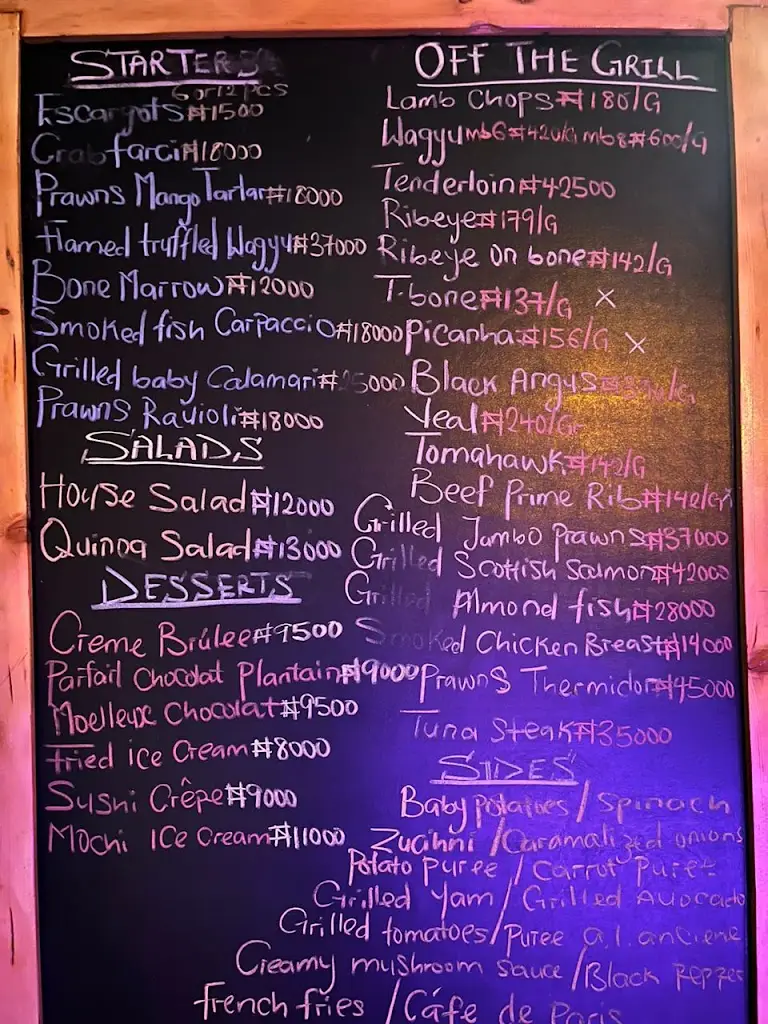 STARTERS
6 or 12 pcs
Escargots ₦1500
Crab farci ₦18000
Prawns Mango Tartar ₦18000
Hamed truffled Wagyu ₦37000
Bone Marrow ₦12000
Smoked fish Carpaccio ₦18000
Grilled baby Calamari ₦25000
Prawns Ravioli ₦18000
SALADS
House Salad ₦12000
Quinoa Salad ₦13000
DESSERTS
Creme Brûlee ₦9500
Parfait Chocolat Plantain ₦9000
Moelleux Chocolat ₦9500
Fried ice Cream ₦8000
Sushi Crêpe ₦9000
Mochi ICe Cream ₦11000
OFF THE GRILL
Lamb Chops ₦180/G
Wagyu mb6 ₦420/G mb8 ₦600/G
Tenderloin ₦42500
Ribeye ₦179/G
Ribeye on bone ₦142/G
T-bone ₦137/G X
Picanha ₦156/G X
Black Angus
Veal ₦240/Gr
Tomahawk ₦142/G
Beef Prime Rib ₦142/Gr
Grilled Jumbo Prawns ₦37000
Grilled Scottish Salmon ₦42000
Grilled Almond fish ₦28000
Smoked Chicken Breast ₦14000
Prawns Thermidor ₦45000
Tuna Steak ₦35000
SIDES
Baby potatoes / Spinach
Zucihni / Caramalized onions
Potato Puree / Carrot Puree
Grilled Yam / Grilled Avocado
Grilled tomatoes / Puree a.l. anciene
Creamy mushroom sauce / Black Pepper
French fries / Cáfe de Paris